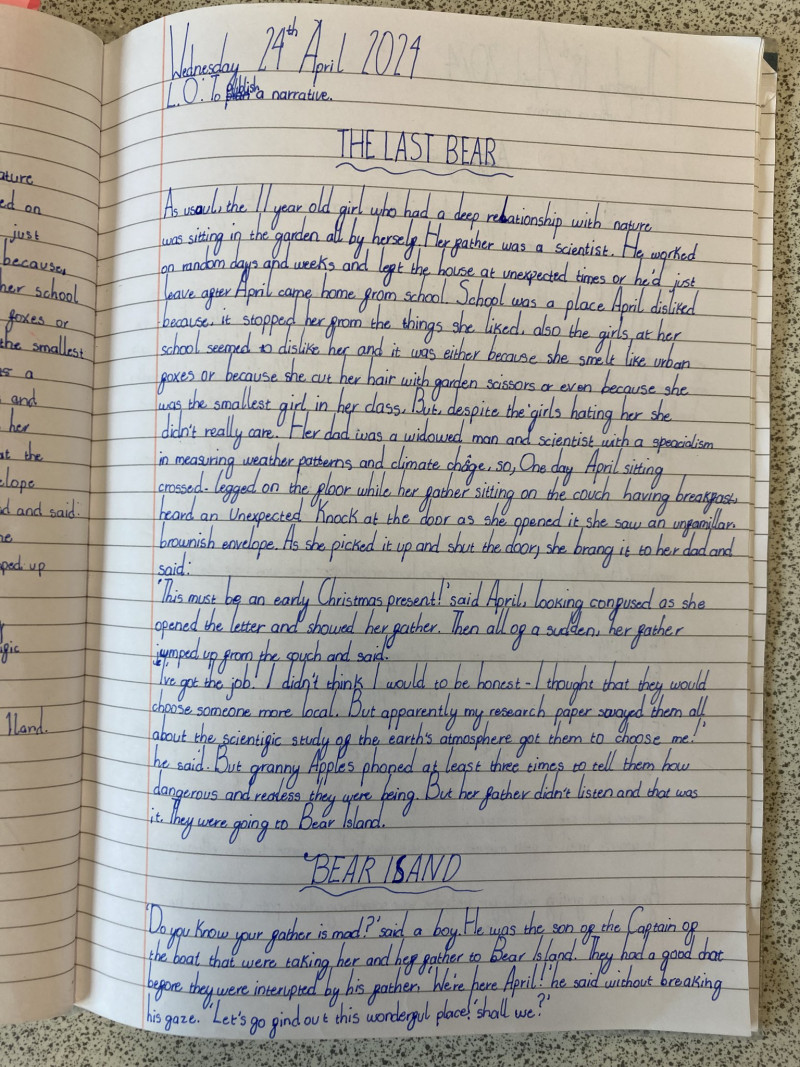 ature
ed on
just
because,
her school
foxes or
the smallest
as a
and
her
at the
elope
d and said:
he
ped up
gic
Iland.
Wednesday 24th April 2024
L.O: To publish a narrative.
THE LAST BEAR
As usaul, the 11 year old girl who had a deep relationship with nature
was sitting in the garden all by herself. Her father was a scientist. He worked
on random days and weeks and left the house at unexpected times or he'd just
leave after April came home from school. School was a place April disliked
because, it stopped her from the things she liked, also the girls, at her
school seemed to dislike her and it was either because she smelt like urban
foxes or because she cut her hair with garden scissors or even because she
was the smallest girl in her class. But, despite the girls hating her she
didn't really care. Her dad was a widowed man and scientist with a speacialism
in measuring weather patterns and climate chage, so, One day April sitting
crossed-legged on the floor while her father sitting on the couch having breakfast,
heard an Unexpected Knock at the door as she opened it, she saw an unfamiliar
brownish envelope. As she picked it up and shut the door, she brang it to her dad and
said:
'This must be an early Christmas present!' said April, looking confused as she
opened the letter and showed her father. Then all of a sudden, her father
jumped up from the couch and said.
'I've got the job! I didn't think I would to be honest - I thought that they would
choose someone more local. But apparently my research paper swayed them all
about the scientific study of the earth's atmosphere got them to choose me!'
he said. But granny Apples phoned at least three times to tell them how
dangerous and reckless they were being. But her father didn't listen and that was
it. They were going to Bear Island.
BEAR ISAND
'Do you Know your father is mad?' said a boy. He was the son of the Captain of
the boat that were taking her and her father to Bear Island. They had a good chat
before they were interupted by his father. 'We're here April!' he said without breaking
his gaze. 'Let's go find out this wonderful place! shall we?'